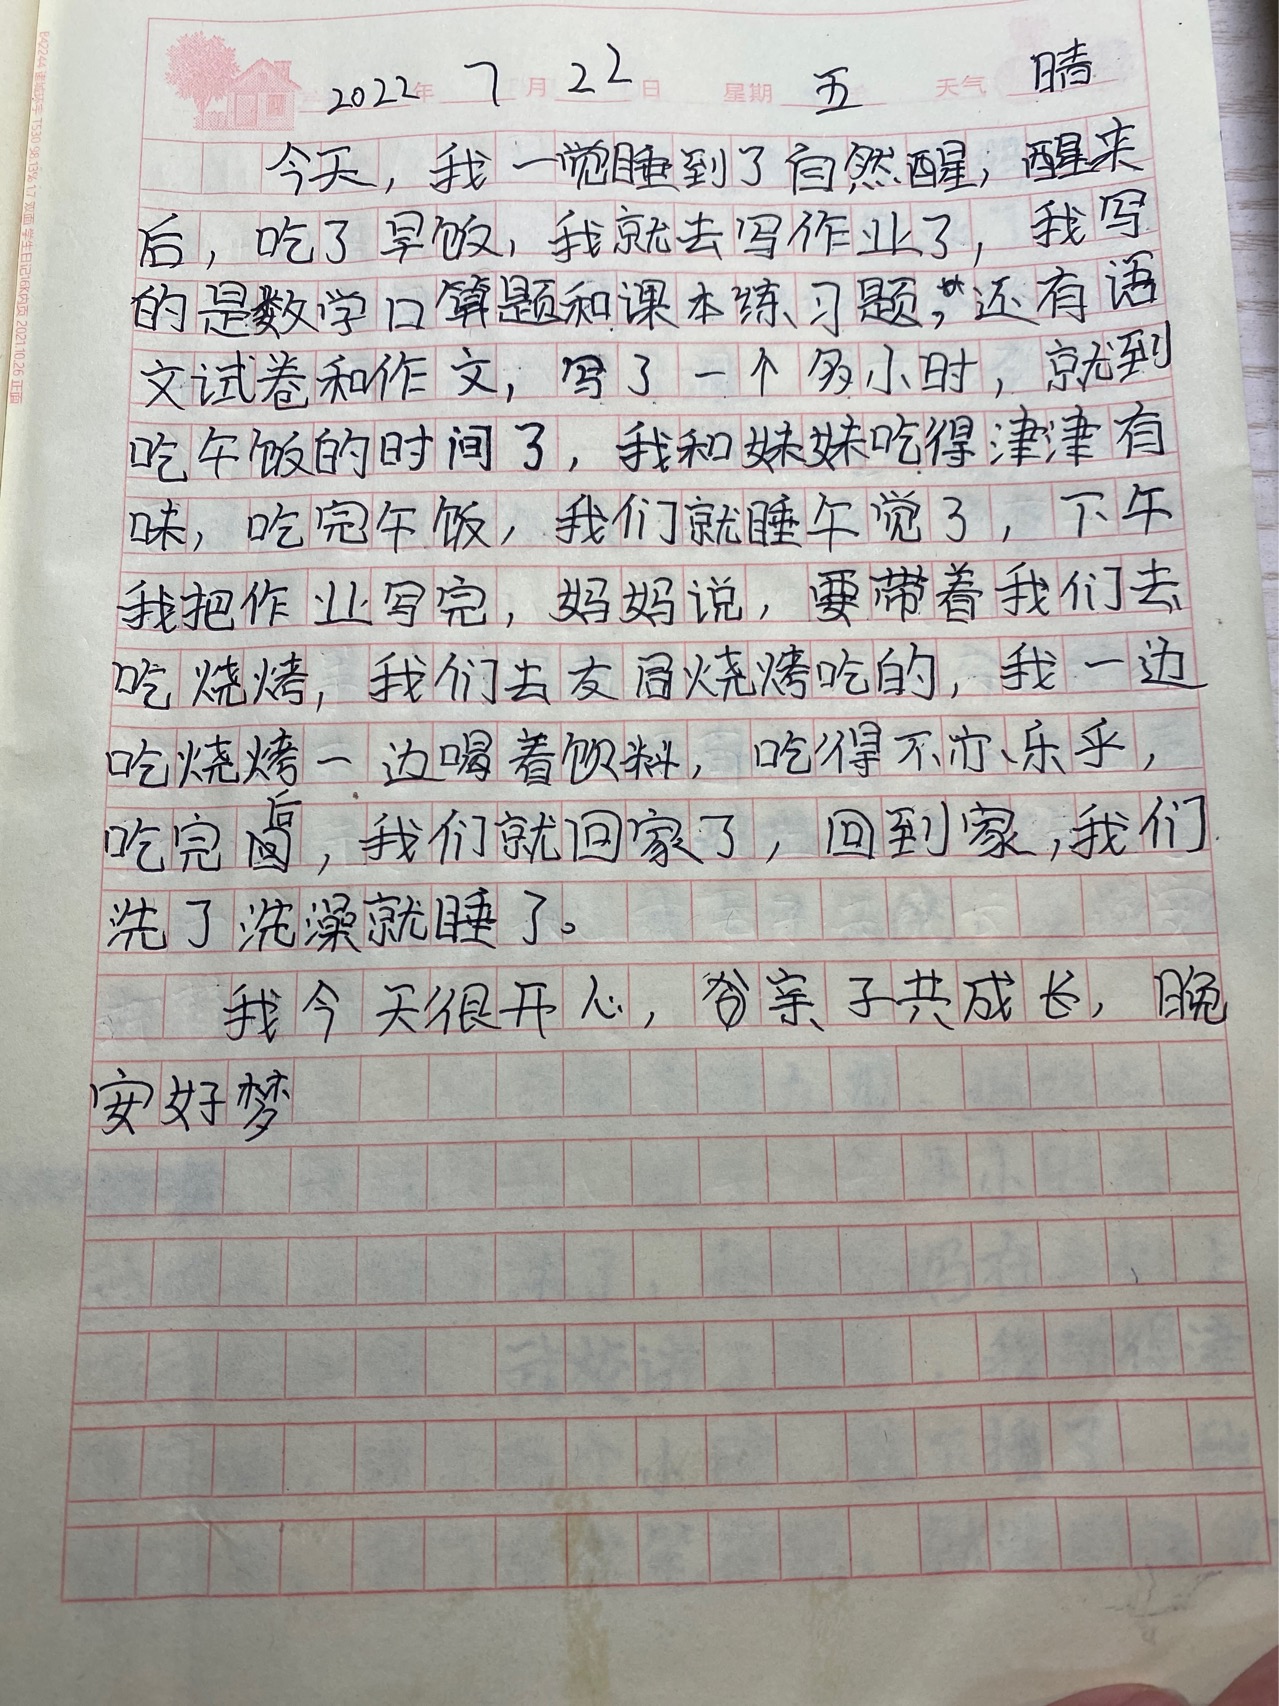 2022年 7月 22日 星期 五 天气 晴
今天，我一觉睡到了自然醒，醒来
后，吃了早饭，我就去写作业了，我写
的是数学口算题和课本练习题，还有语
文试卷和作文，写了一个多小时，就到
吃午饭的时间了，我和妹妹吃得津津有
味，吃完午饭，我们就睡午觉了，下午
我把作业写完，妈妈说，要带着我们去
吃烧烤，我们去友局烧烤吃的，我一边
吃烧烤一边喝着饮料，吃得不亦乐乎，
吃完后，我们就回家了，回到家，我们
洗了洗澡就睡了。
我今天很开心，亲子共成长，晚
安好梦